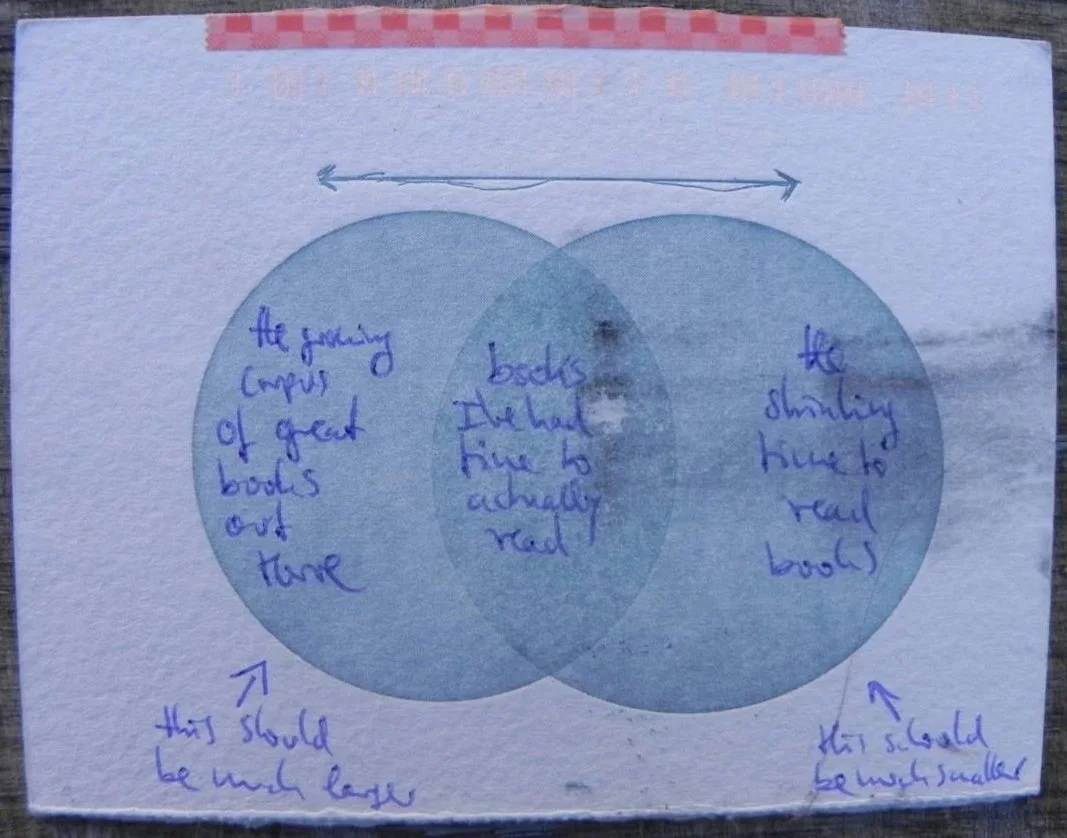 the growing
corpus
of great
books
out
there
books
I've had
time to
actually
read
the
shrinking
time to
read
books
this should
be much larger
this should
be much smaller